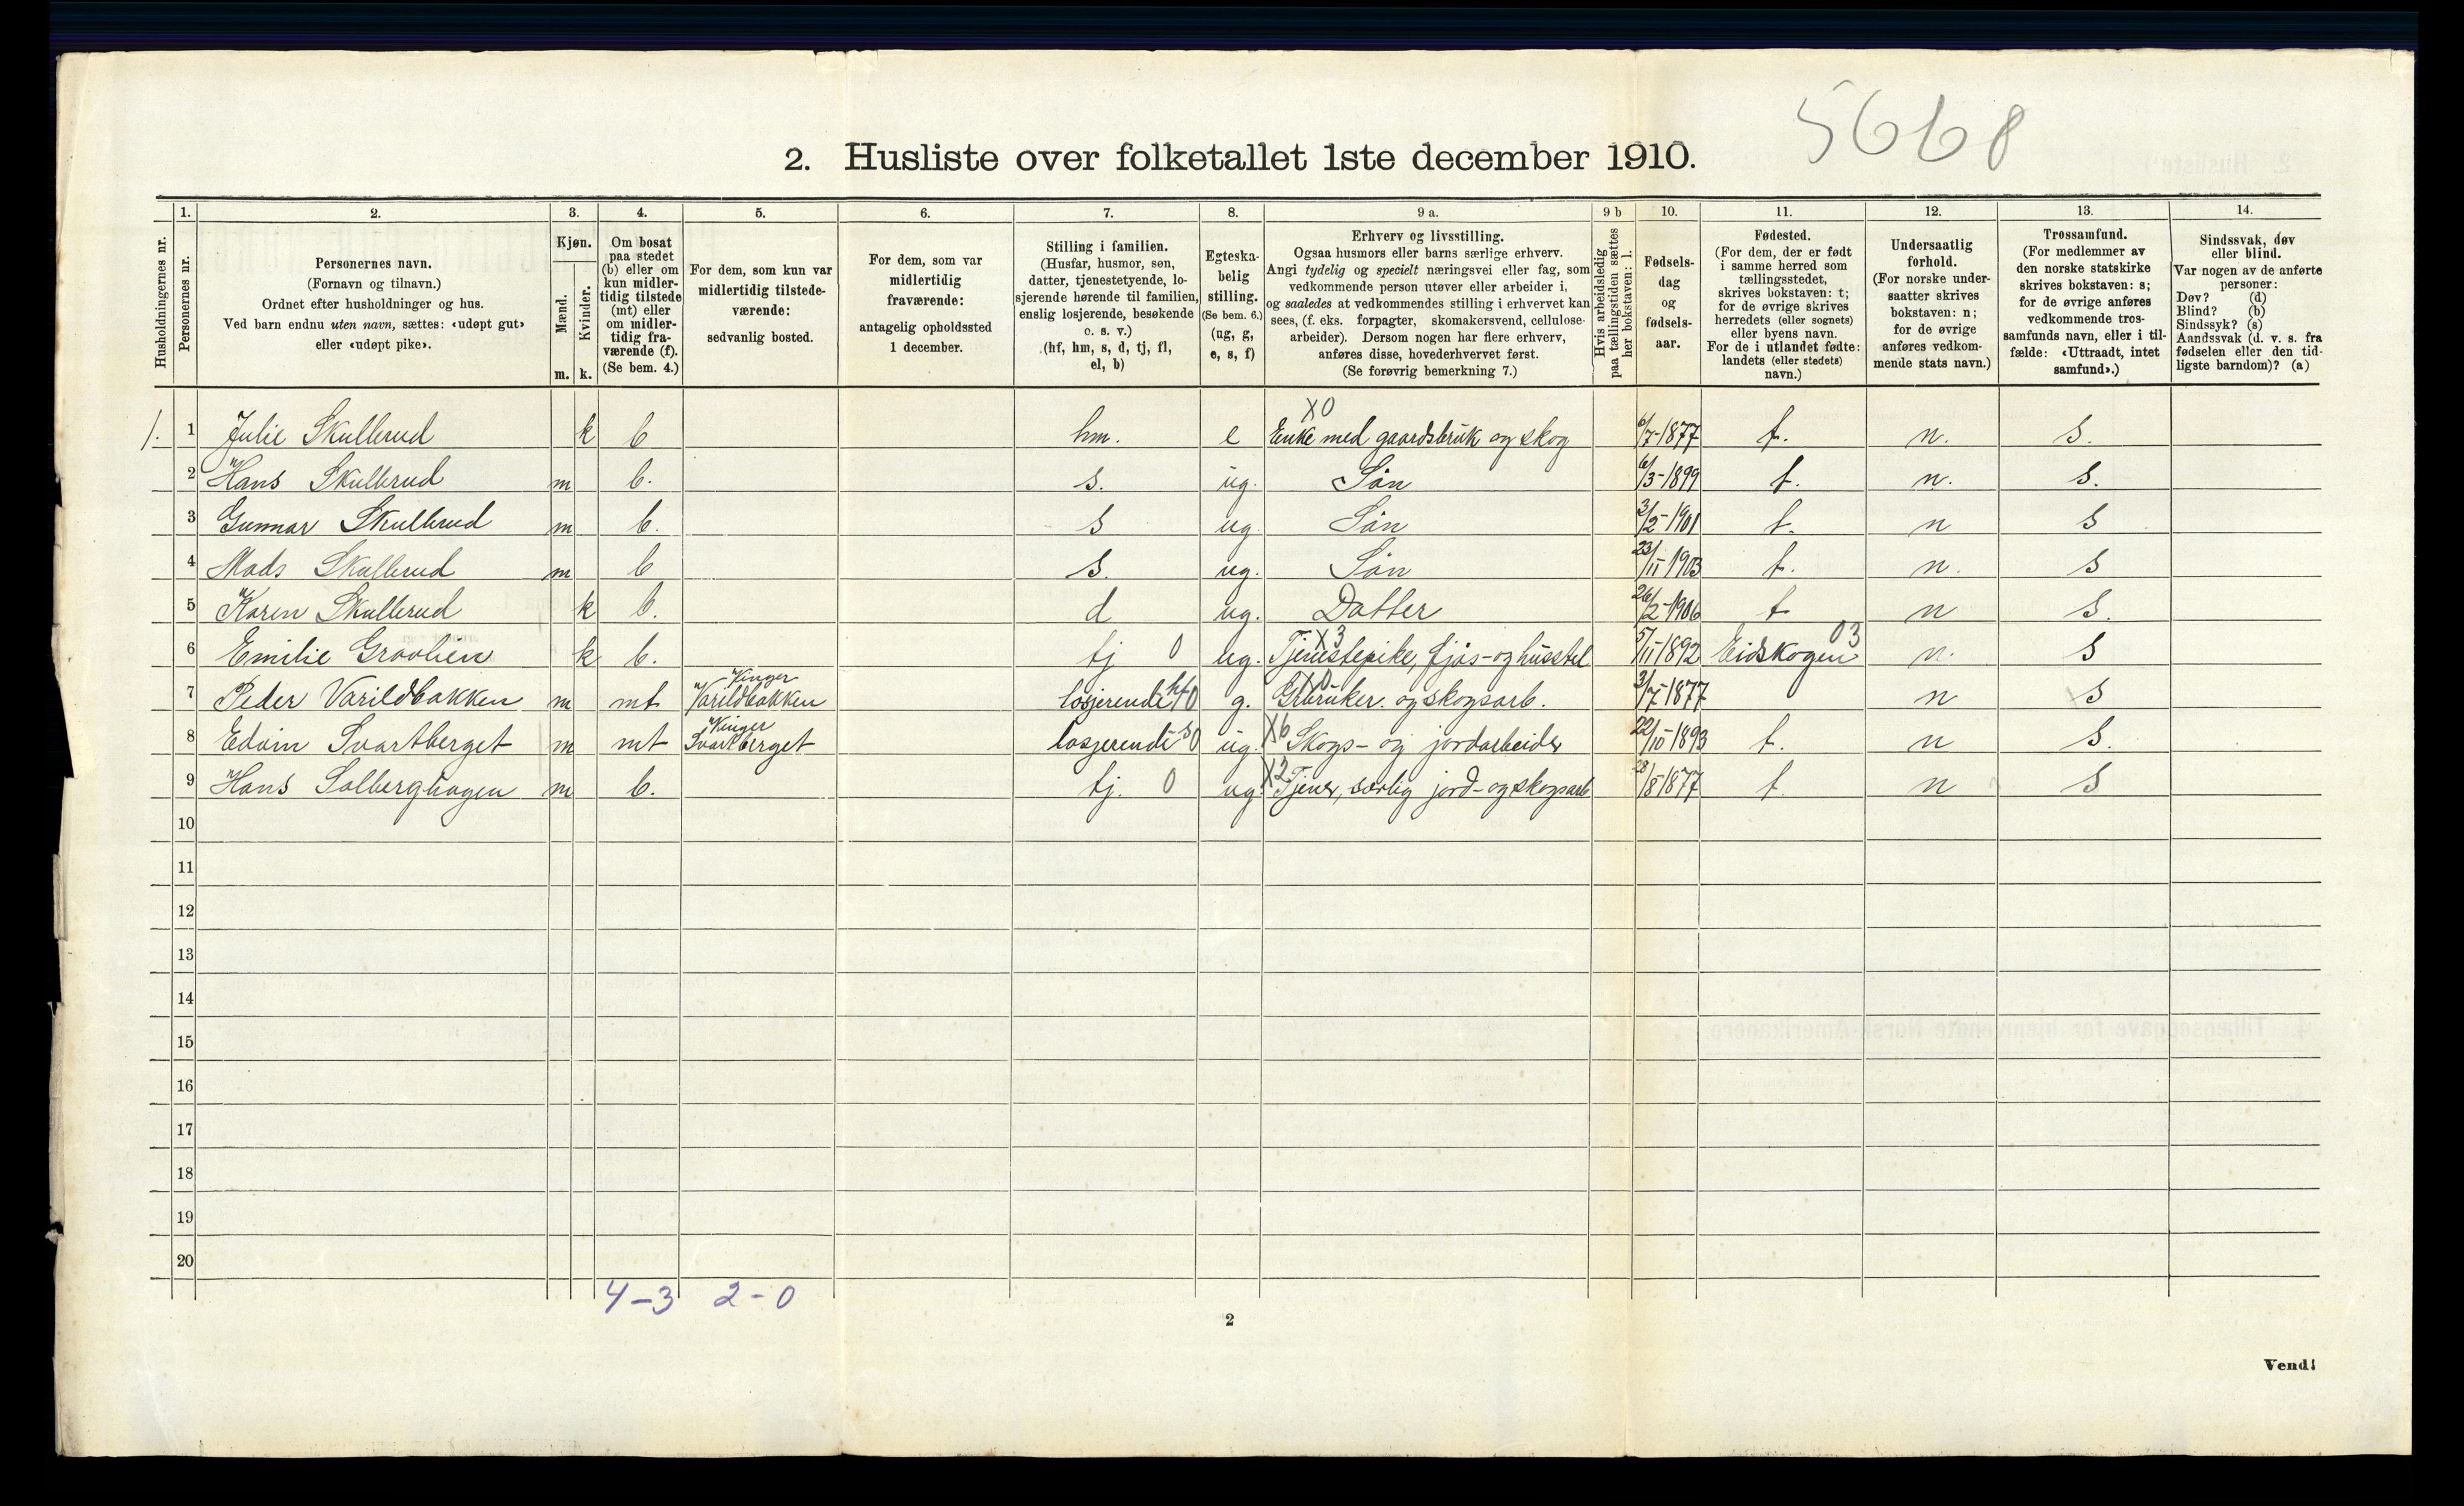 5668
2. Husliste over folketallet 1ste december 1910.
Husholdningernes nr.
1.
Personernes nr.
2.
Personernes navn.
(Fornavn og tilnavn.)
Ordnet efter husholdninger og hus.
Ved barn endnu uten navn, sættes: «udøpt gut»
eller «udøpt pike».
3.
Kjøn.
Mænd.
Kvinder.
m. k.
4.
Om bosat
paa stedet
(b) eller om
kun midler-
tidig tilstede
(mt) eller
om midler-
tidig fra-
værende (f).
(Se bem. 4.)
5.
For dem, som kun var
midlertidig tilstede-
værende:
sedvanlig bosted.
6.
For dem, som var
midlertidig
fraværende:
antagelig opholdssted
1 december.
7.
Stilling i familien.
(Husfar, husmor, søn,
datter, tjenestetyende, lo-
sjerende hørende til familien,
enslig losjerende, besøkende
o. s. v.)
(hf, hm, s, d, tj, fl,
el, b)
8.
Egteska-
belig
stilling.
(Se bem. 6.)
(ug, g,
e, s, f)
9 a.
Erhverv og livsstilling.
Ogsaa husmors eller barns særlige erhverv.
Angi tydelig og specielt næringsvei eller fag, som
vedkommende person utøver eller arbeider i,
og saaledes at vedkommendes stilling i erhvervet kan
sees, (f. eks. forpagter, skomakersvend, cellulose-
arbeider). Dersom nogen har flere erhverv,
anføres disse, hovederhvervet først.
(Se forøvrig bemerkning 7.)
9 b
Hvis arbeidsledig
paa tællingstiden sættes
her bokstaven: l.
10.
Fødsels-
dag
og
fødsels-
aar.
11.
Fødested.
(For dem, der er født
i samme herred som
tællingsstedet,
skrives bokstaven: t;
for de øvrige skrives
herredets (eller sognets)
eller byens navn.
For de i utlandet fødte:
landets (eller stedets)
navn.)
12.
Undersaatlig
forhold.
(For norske under-
saatter skrives
bokstaven: n;
for de øvrige
anføres vedkom-
mende stats navn.)
13.
Trossamfund.
(For medlemmer av
den norske statskirke
skrives bokstaven: s;
for de øvrige anføres
vedkommende tros-
samfunds navn, eller i til-
fælde: «Uttraadt, intet
samfund».)
14.
Sindssvak, døv
eller blind.
Var nogen av de anførte
personer:
Døv? (d)
Blind? (b)
Sindssyk? (s)
Aandssvak (d. v. s. fra
fødselen eller den tid-
ligste barndom)? (a)
X0
1. 1 Julie Skullerud k b hm. e Enke med gaardsbruk og skog 6/7-1877 t. n. s.
2 Hans Skullerud m b. s. ug. Søn 6/3-1899 t. n. s.
3 Gunnar Skullerud m b. s ug. Søn 3/2-1901 t. n s
4 Mads Skullerud m b s. ug. Søn 23/11 1903 t. n. s
5 Karen Skullerud k b. d ug. Datter 26/2-1906 t n s.
X3 03
6 Emilie Graalien k b. tj 0 ug. Tjenestepike, fjøs- og husstel 5/11-1892 Eidskogen n. s
Vinger
7 Peder Varildbakken m mt Varildbakken losjerende hf 0 g. X0 Gbruker. og skogsarb. 3/7-1877 n s
Vinger
8 Edvin Svartberget m mt Svartberget losjerende s 0 ug. X6 Skogs- og jordarbeider 22/10-1893 t. n s.
9 Hans Solberghagen m b. tj. 0 ug. X2 Tjener, særlig jord- og skogsarb 28/8 1877 t n s
10
11
12
13
14
15
16
17
18
19
20
4-3 2-0
2
Vend!